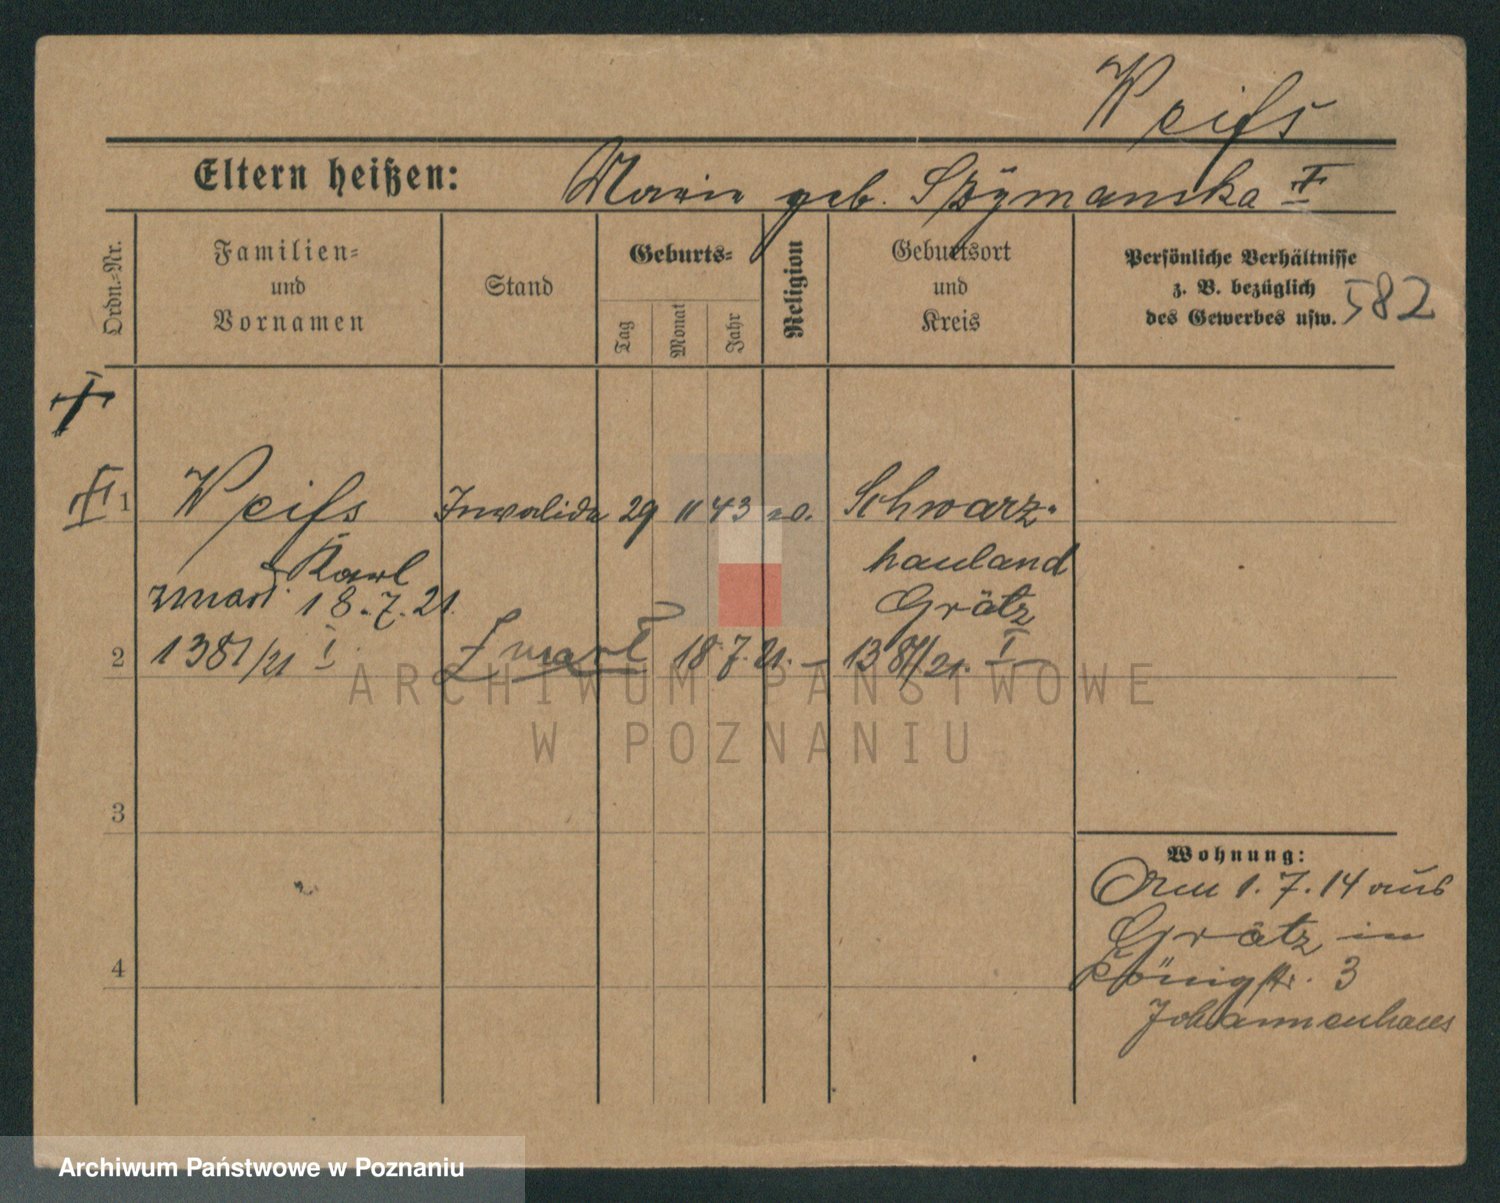 Weiſs
Eltern heißen: Marie geb. Szymanska
Ordn.-Nr.
Familien-
und
Vornamen
Stand
Geburts-
Tag
Monat
Jahr
Religion
Geburtsort
und
Kreis
Persönliche Verhältnisse
z. B. bezüglich
des Gewerbes usw.
582
1 Weiſs Invalide 29 11 43 Schwarz-
Karl hauland
zmarł 18.7.21. Grätz
2 1381/21 I Zmarł 18.7.21. – 1381/21. I
ARCHIWUM PAŃSTWOWE
W POZNANIU
3
Wohnung:
1.7.14 aus
Grätz in
Königstr. 3
4
Johannenhaus
Archiwum Państwowe w Poznaniu